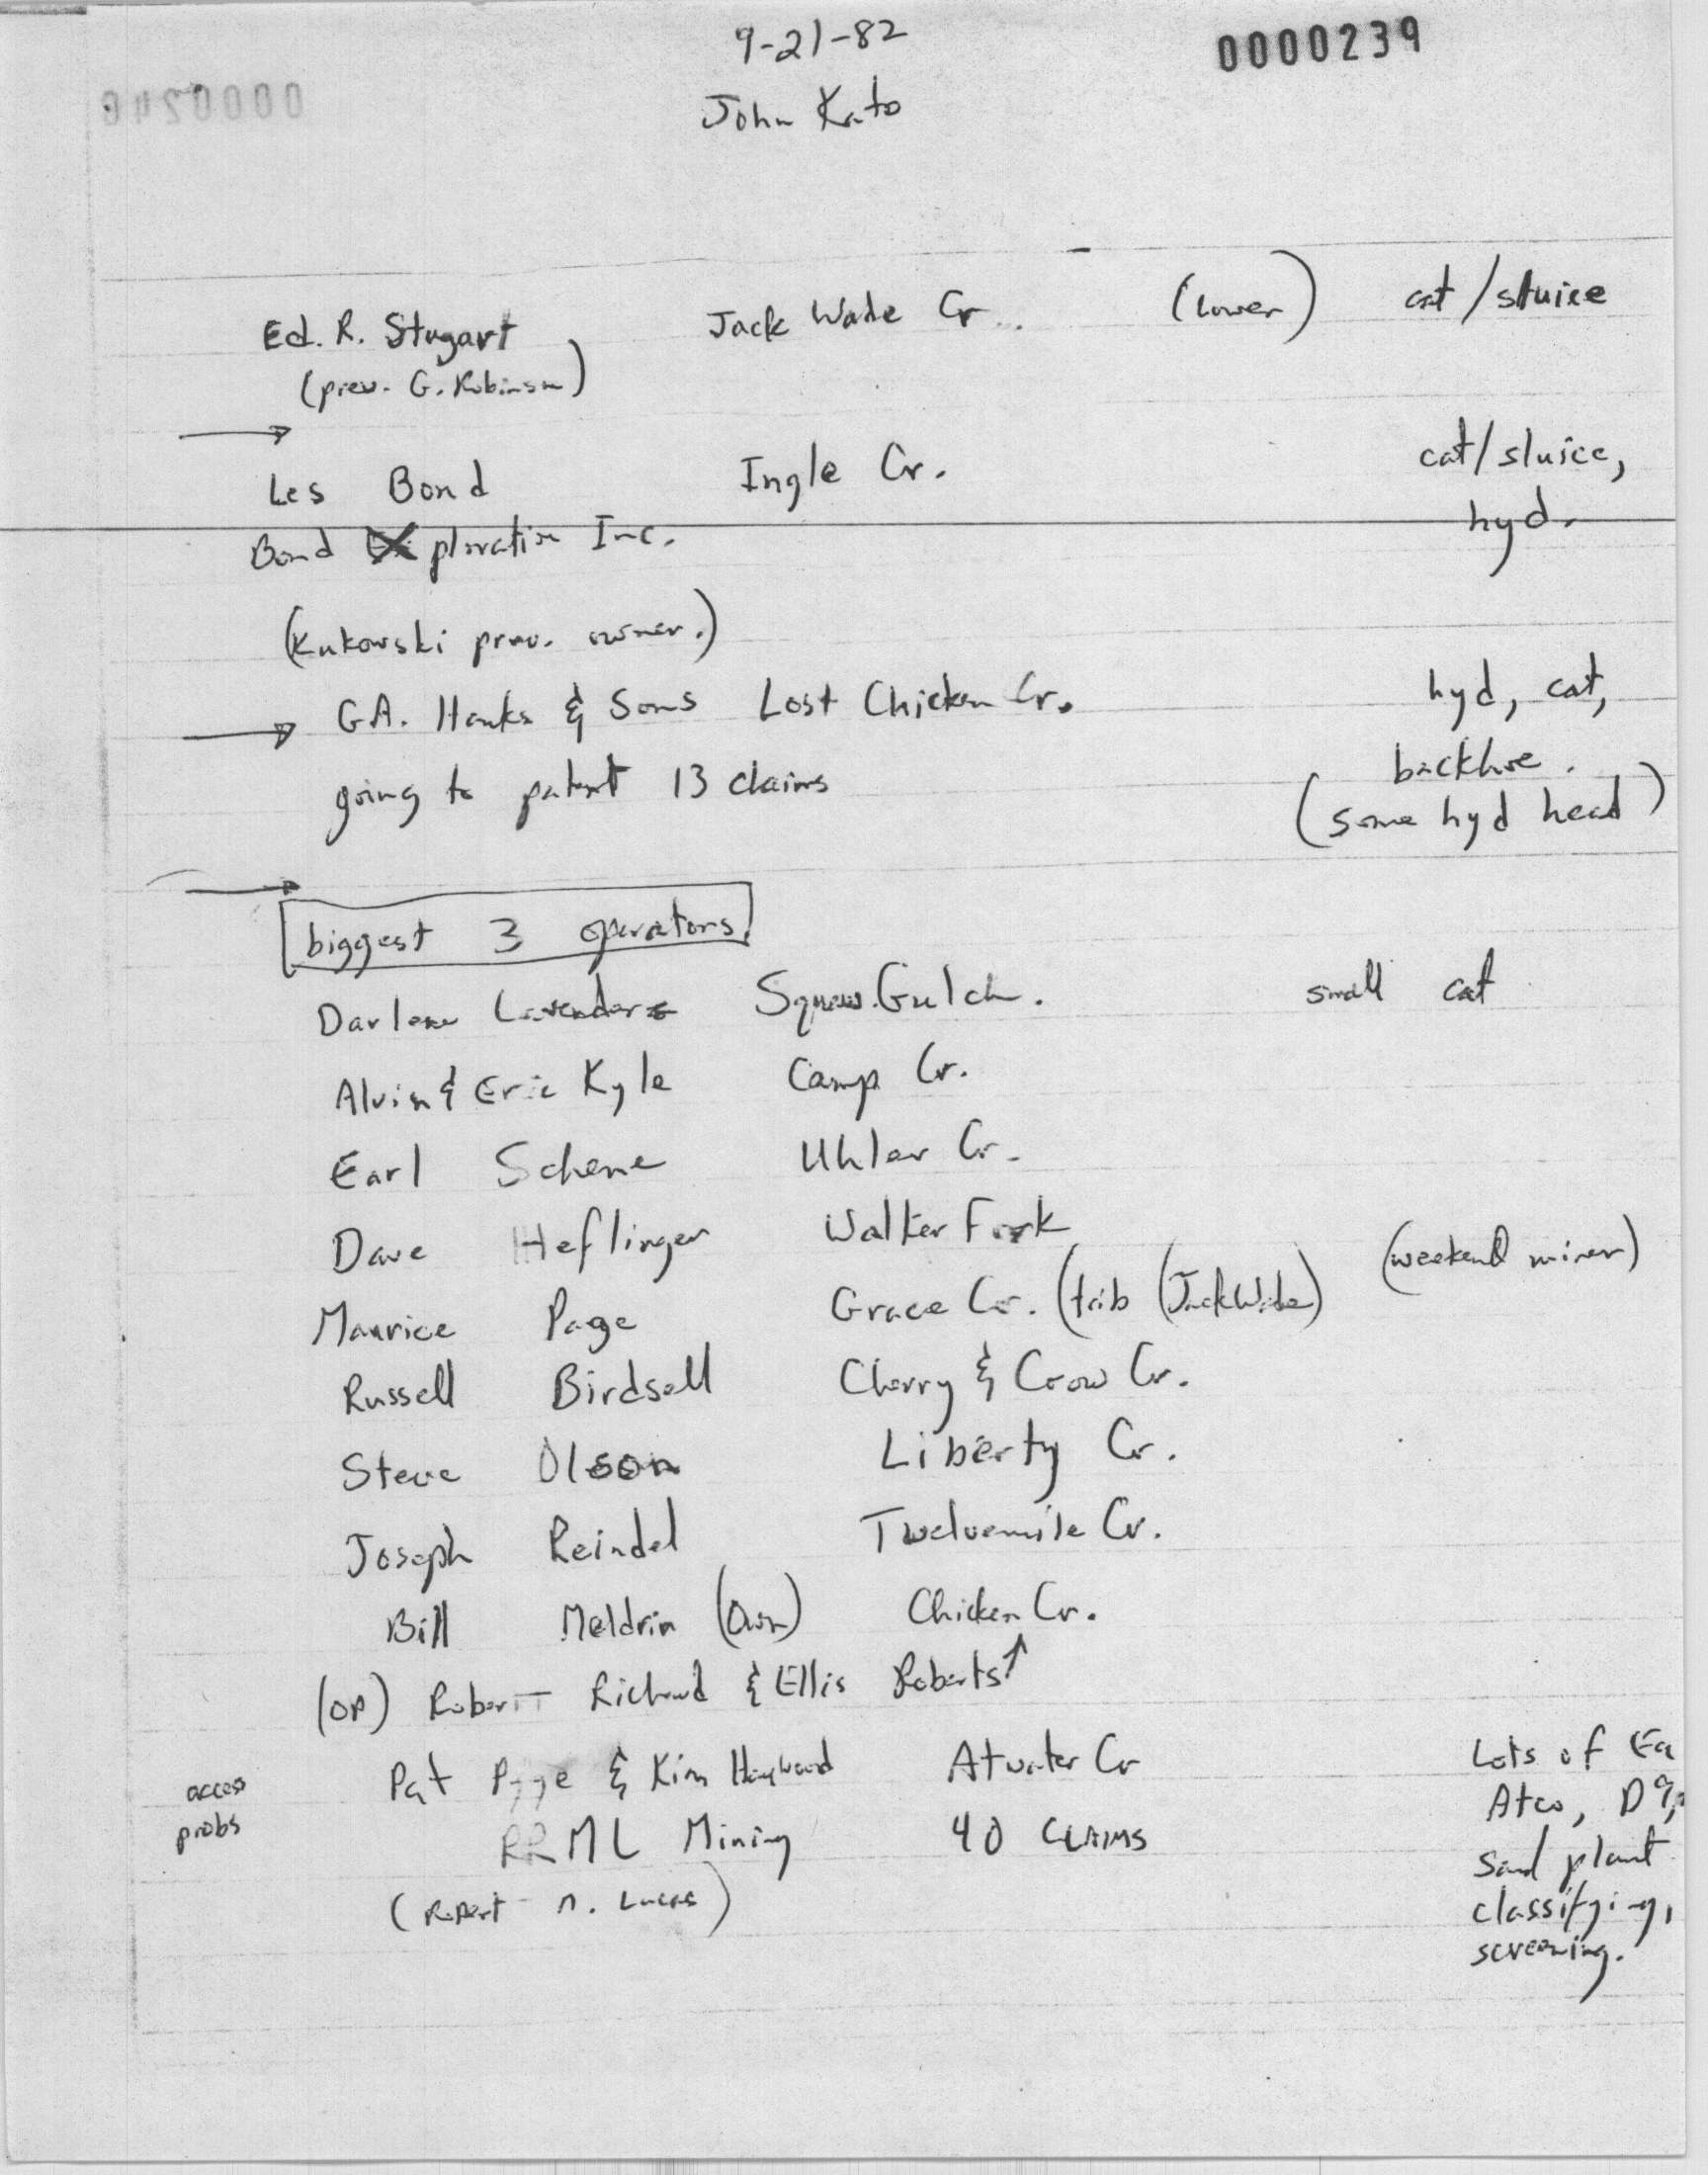 9-21-82
0000239
John Kato
Ed. R. Stugart Jack Wade Cr... (lower) cat/sluice
(prev. G. Robinson)
Les Bond Ingle Cr. cat/sluice,
hyd.
Bond Exploration Inc.
(Kukowski prev. owner.)
G.A. Hanks & Sons Lost Chicken Cr. hyd, cat,
going to patent 13 claims backhoe.
(some hyd head)
biggest 3 operators.
Darlene Lavender Squaw Gulch. small cat
Alvin & Eric Kyle Camp Cr.
Earl Schene Uhler Cr.
Dave Heflinger Walker Fork
Maurice Page Grace Cr. (trib (Jack Wade) (weekend miner)
Russell Birdsall Cherry & Crow Cr.
Steve Olson Liberty Cr.
Joseph Reindel Twelvemile Cr.
Bill Meldrin (Own) Chicken Cr.
(OP) Robert Richard & Ellis Roberts ↑
access probs
Pat & Kim Haywood Atwater Cr Lots of
RRML Mining 40 CLAIMS Atco,
sand plant
(Robert n. Lucas) classifying,
screening.